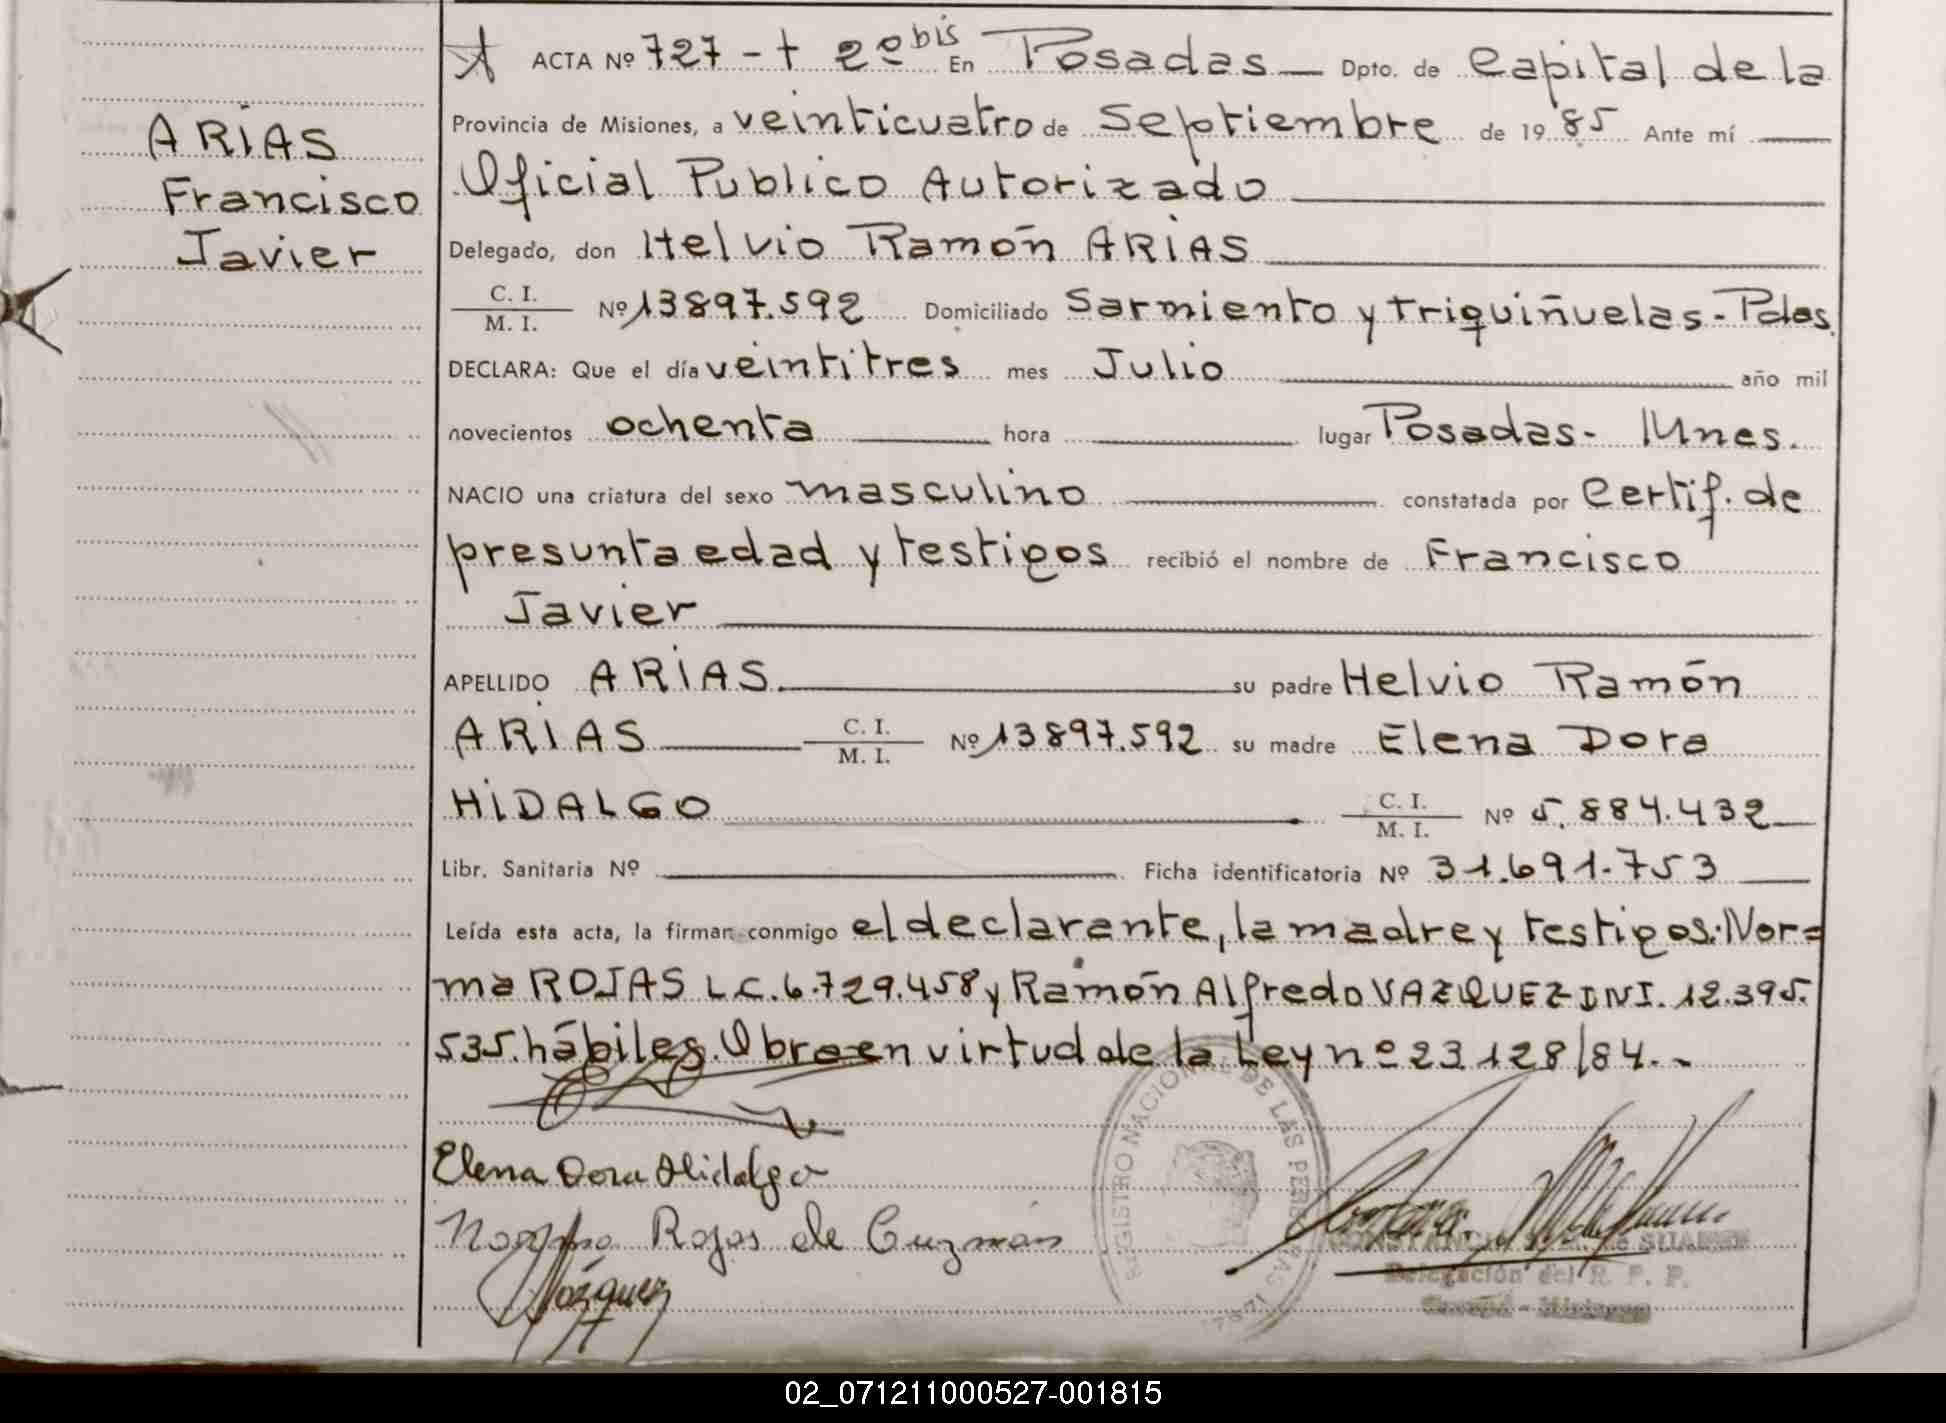 ARIAS
Francisco
Javier
ACTA Nº 727 - t 2º bis En Posadas Dpto. de Capital de la
Provincia de Misiones, a veinticuatro de Septiembre de 1985 Ante mí
Oficial Publico Autorizado
Delegado, don Helvio Ramón ARIAS
C. I.
M. I. Nº 13897.592 Domiciliado Sarmiento y triquiñuelas - Pdas.
DECLARA: Que el día veintitres mes Julio año mil
novecientos ochenta hora lugar Posadas - Mnes.
NACIO una criatura del sexo masculino constatada por Certif. de
presunta edad y testigos recibió el nombre de Francisco
Javier
APELLIDO ARIAS su padre Helvio Ramón
ARIAS C. I.
M. I. Nº 13897.592 su madre Elena Dora
HIDALGO C. I.
M. I. Nº 5.884.432
Libr. Sanitaria Nº Ficha identificatoria Nº 31.691.753
Leída esta acta, la firman conmigo el declarante, la madre y testigos: Nor=
ma ROJAS L.C. 6.729.458 y Ramón Alfredo VAZQUEZ DNI. 12.395.
535. hábiles. Obra en virtud de la Ley nº 23.128/84.-
Elena Dora Hidalgo
Norma Rojas de Guzmán
Vázquez
REGISTRO NACIONAL DE LAS PERSONAS
Delegación del R. P. P.
02_071211000527-001815